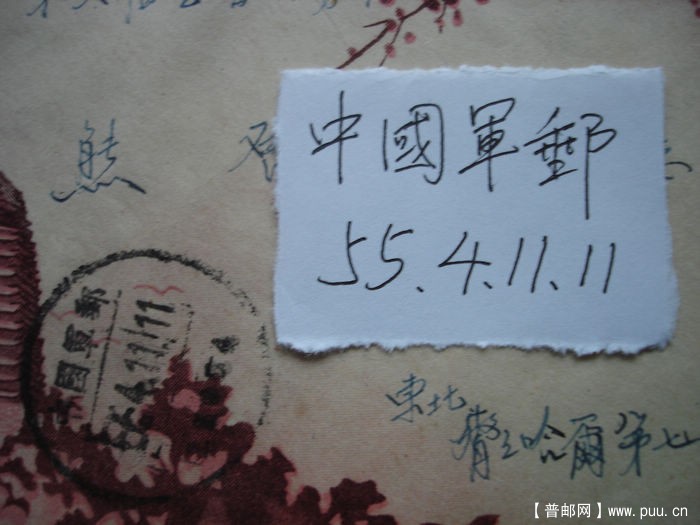 熊
中國軍郵
55.4.11.11
中國軍郵
55.4.11.11
東北
齊哈爾第七
【普邮网】www.puu.cn